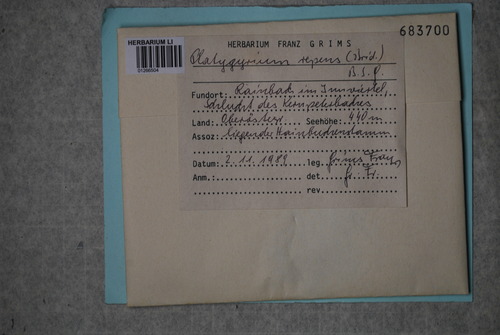 HERBARIUM LI
01396504
683700
HERBARIUM FRANZ GRIMS
Platygyrium repens (Brid.)
B.S.G.
Fundort: Rainbach im Innviertel,
Schlucht des Kenpeterbaches
Land: Oberösterr. Seehöhe: 440 m
Assoz: liegender Hainbuchenstamm
Datum: 2.11.1989 leg. Grims Franz
Anm.: det. Gr. Fr.
rev.